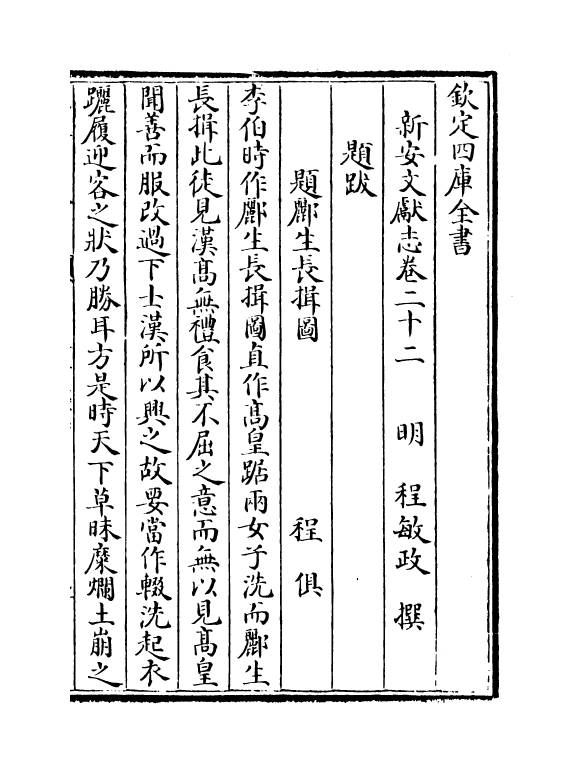 欽定四庫全書
新安文獻志卷二十二　明　程敏政　撰
題跋
題酈生長揖圖　程俱
李伯時作酈生長揖圖直作髙皇踞兩女子洗而酈生
長揖此徒見漢髙無禮食其不屈之意而無以見髙皇
聞善而服改過下士漢所以興之故要當作輟洗起衣
躧履迎客之狀乃勝耳方是時天下草昧糜爛土崩之